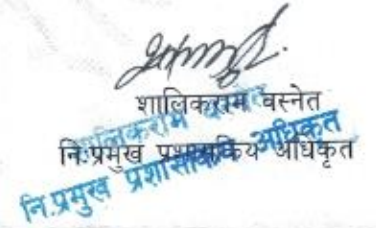 शालिकराम वस्नेत
नि.प्रमुख प्रशासकिय अधिकृत
शालिकराम वस्नेत
नि.प्रमुख प्रशासकिय अधिकृत